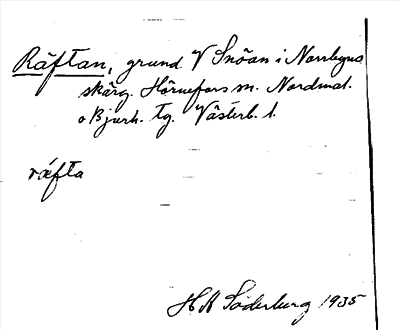 Räftan, grund V Snöan i Norrbyns
skärg. Hörnefors sn. Nordmal.
o Bjurh. tg. Västerb. l.
räfta
H A Söderburg 1935